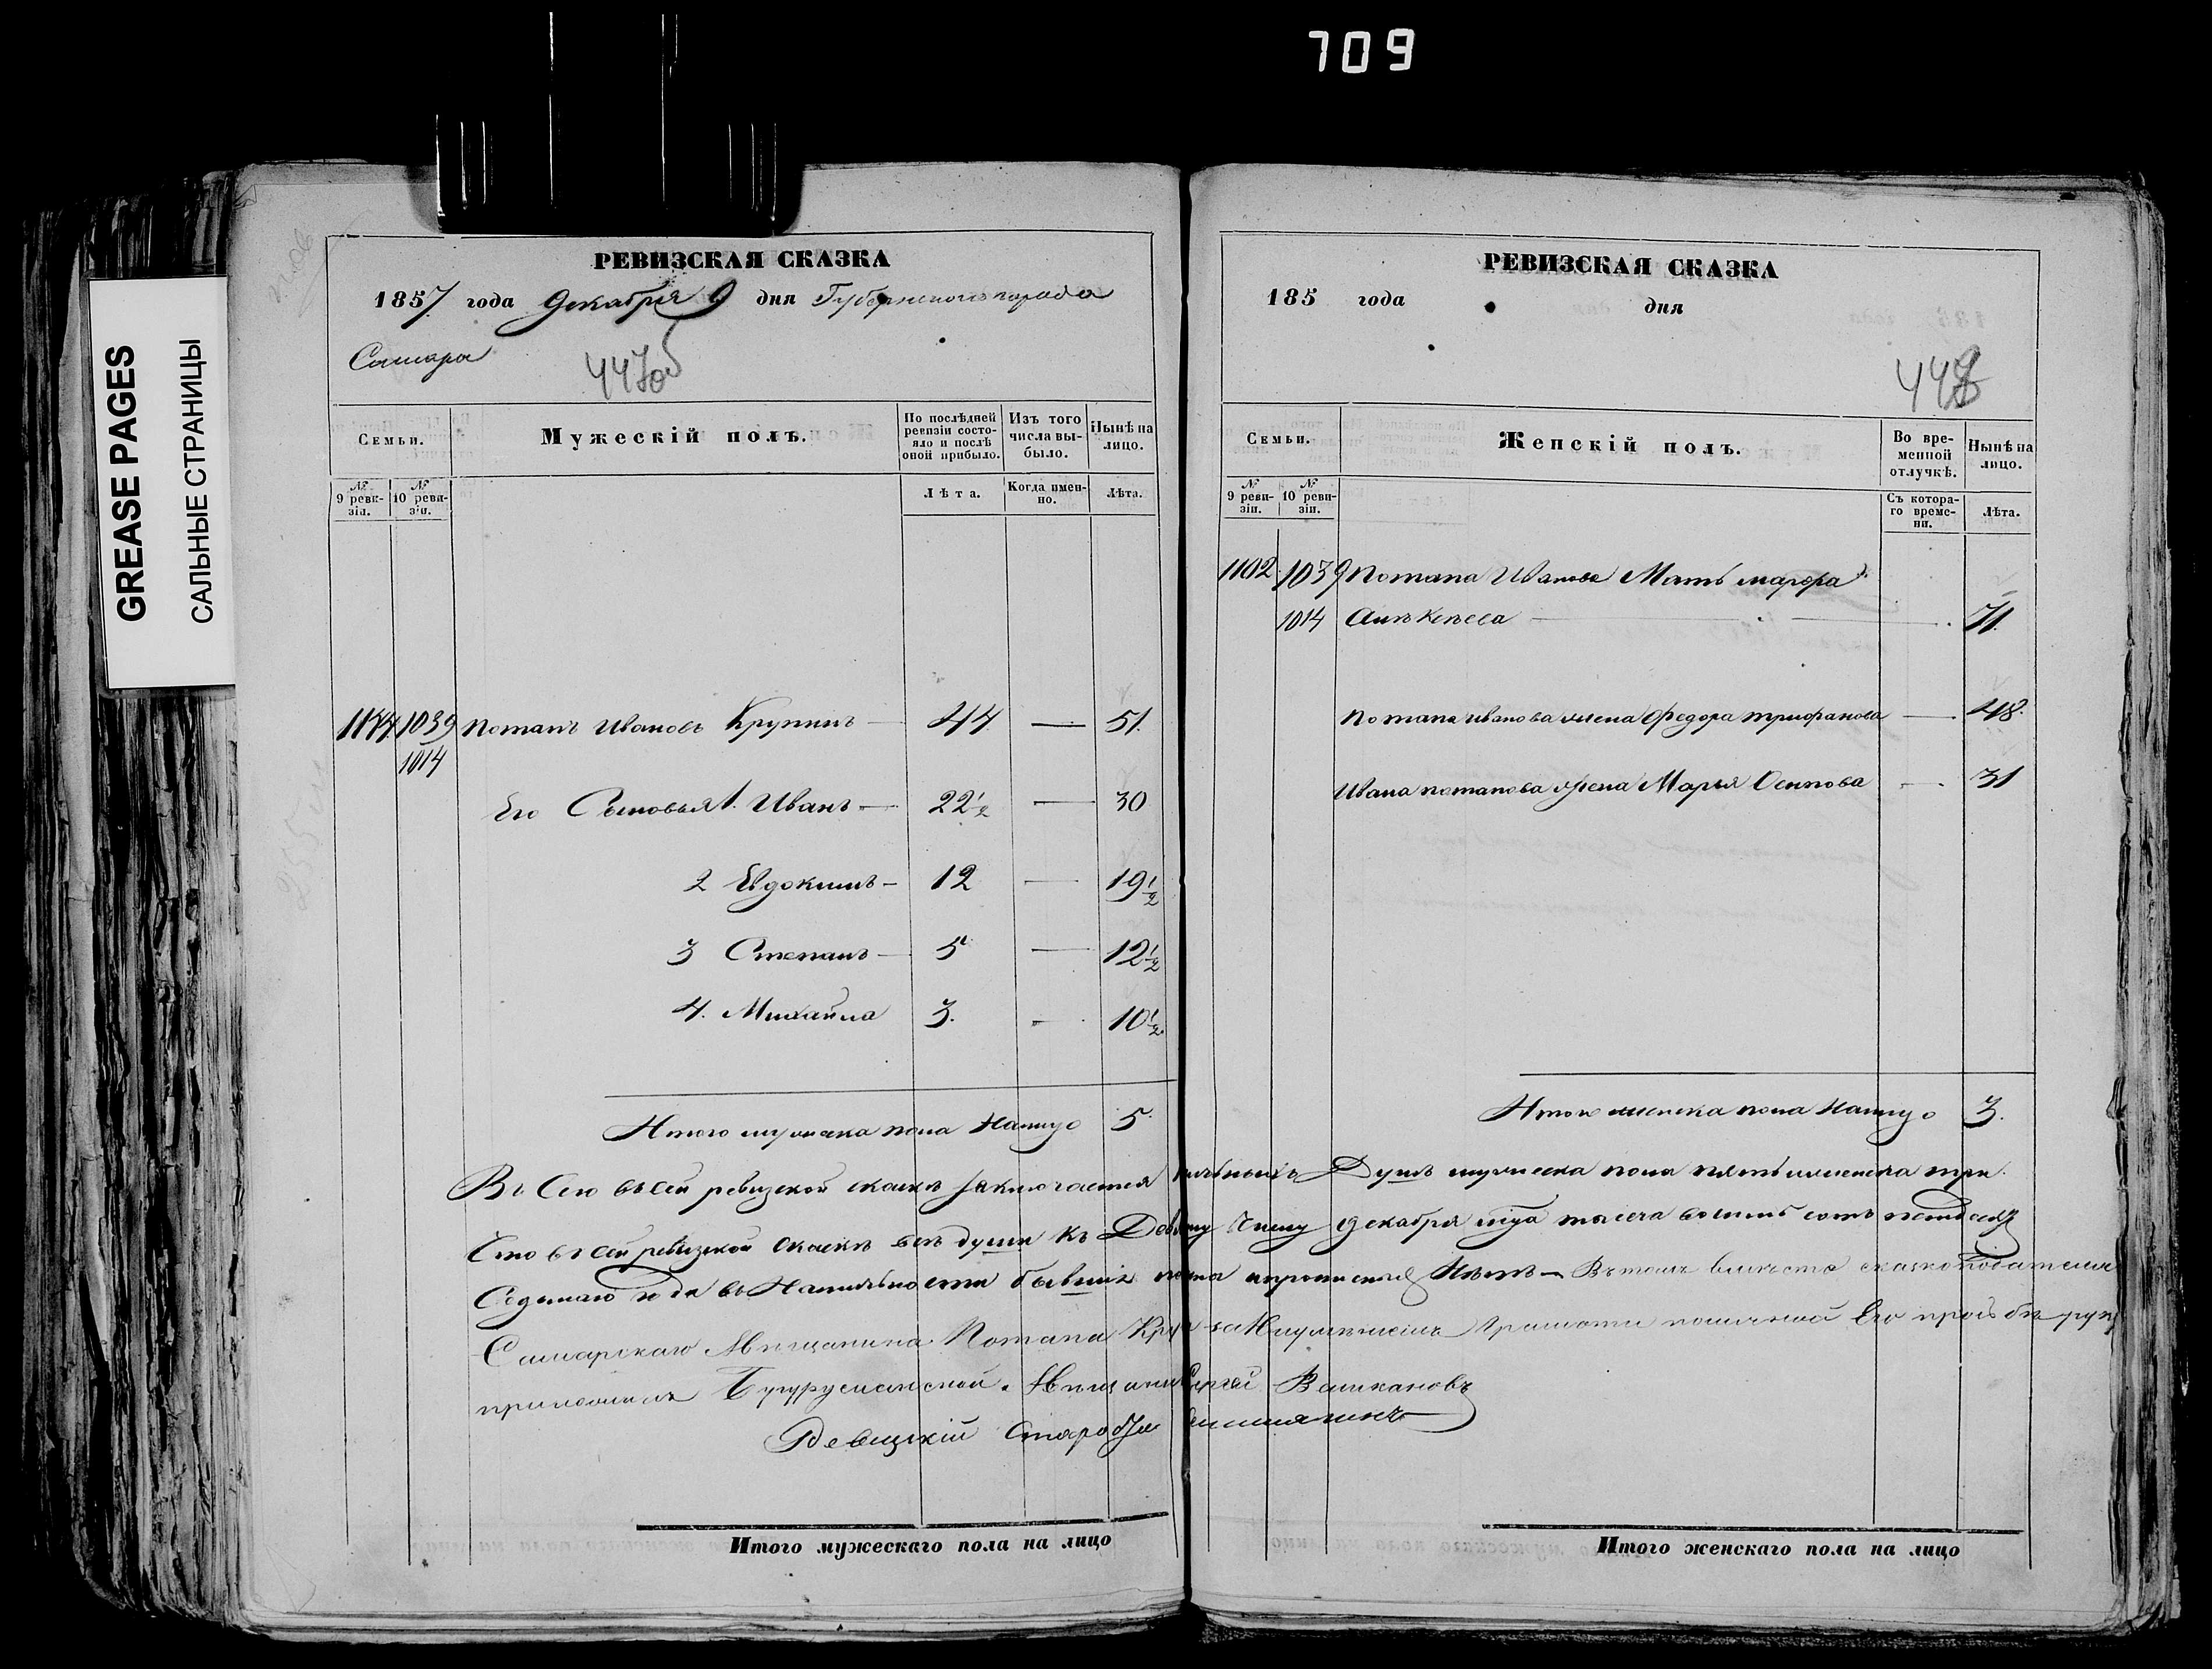 709
GREASE PAGES
САЛЬНЫЕ СТРАНИЦЫ
РЕВИЗСКАЯ СКАЗКА
1857 года Декабря 9 дня Губернского города
Самара
447об
Семьи.
Мужескій полъ.
По послѣдней ревизіи состояло и послѣ оной прибыло.
Изъ того числа выбыло.
Нынѣ на лицо.
№ 9 ревизіи.
№ 10 ревизіи.
Лѣта.
Когда именно.
Лѣта.
1039 Потапъ Ивановъ Крупинъ — 44 — 51.
1014
Его Сыновья 1. Иванъ — 22½ — 30
2 Евдокимъ — 12 — 19½
3 Степанъ — 5 — 12½
4. Михайла 3. — 10½
Итого мужска пола Налицо 5.
РЕВИЗСКАЯ СКАЗКА
185 года дня
448
Семьи.
Женскій полъ.
Во временной отлучкѣ.
Нынѣ на лицо.
№ 9 ревизіи.
№ 10 ревизіи.
Съ котораго времени.
Лѣта.
1102 1039 Потапа Иванова Мать
1014 71.
Потапа иванова жена Федора трифанова — 48.
Ивана потапова жена Марья Осипова — 31
Итого женска пола Налицо 3.
сей ревизской скаскѣ заключается Душъ мужеска пола пять женска три.
сей ревизской скаскѣ всѣ души къ числу декабря тысеча восемь сотъ
Седьмаго года въ Наличности бывшіе Нѣтъ — Вътомъ вместо сказкоподателя
Самарскаго Мещанина Потапа за Неуменіемъ Грамоты поличной Его прозьбе
приложилъ Бугурусланской Мещанинъ Сергей
Ревизскій Староста
Итого мужескаго пола на лицо
Итого женскаго пола на лицо